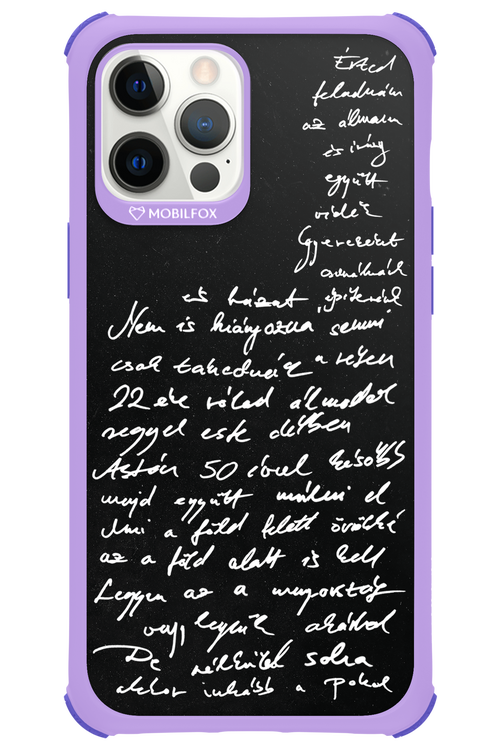 MOBILFOX
Érted
feladnám
az álmam
és
együtt
Gyerekeket
csinálnánk
és házat építenénk
Nem is hiányozna semmi
csak a
22 éve rólad álmodok
reggel este délben
Aztán 50 évvel később
majd együtt múlni el
Ami a föld felett örökké
az a föld alatt is kell
Legyen az a mennyország
vagy legyünk akárhol
De nélküled soha
akkor inkább a Pokol